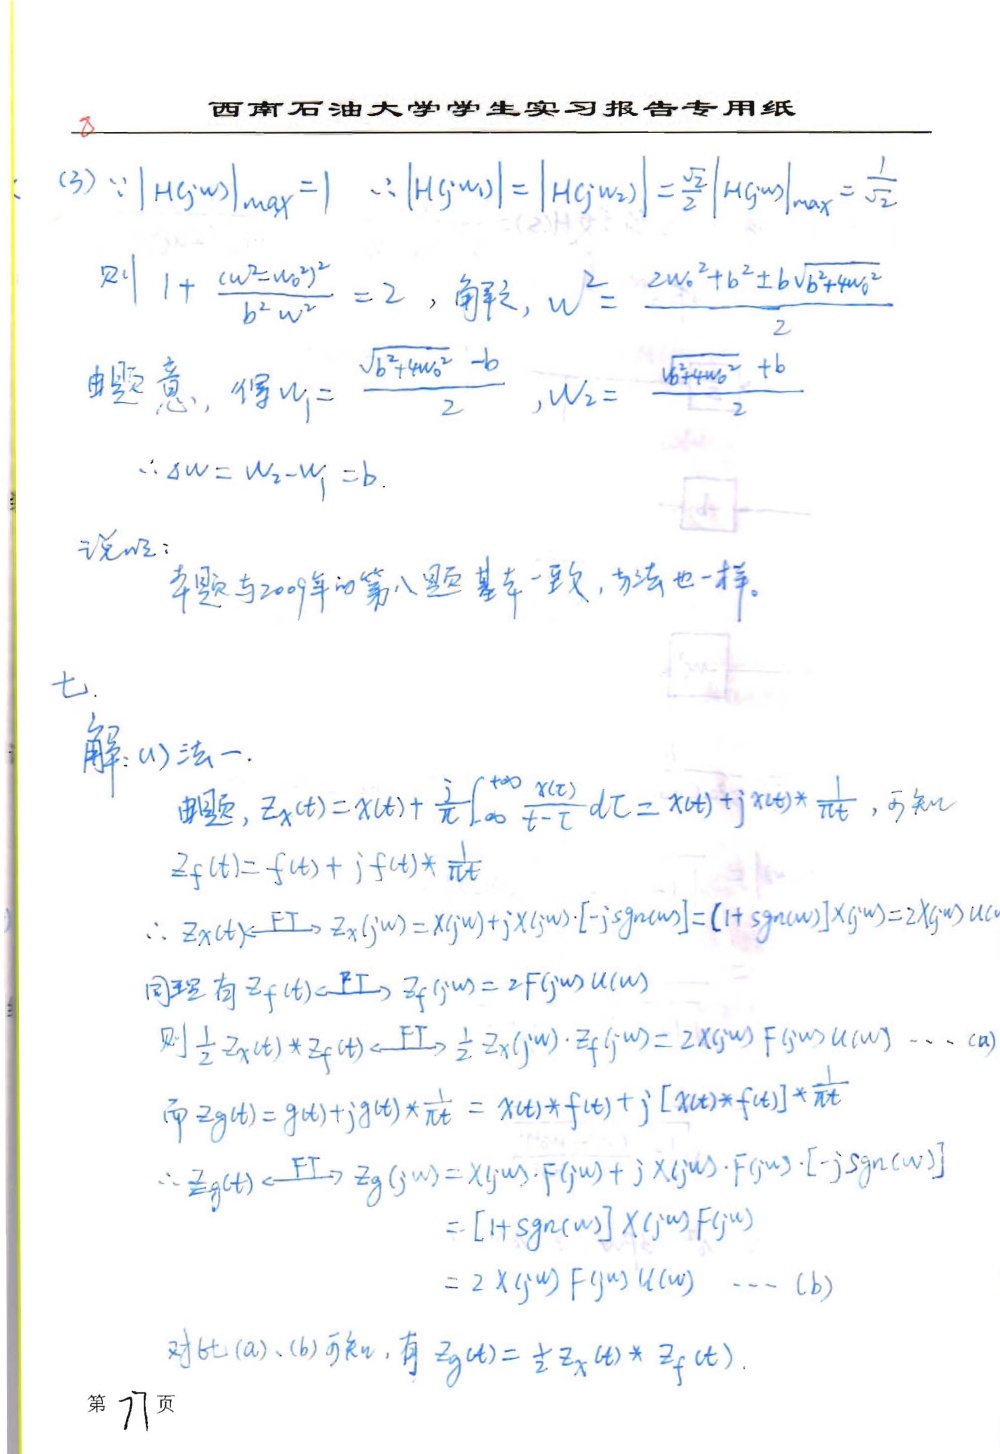 西南石油大学学生实习报告专用纸
8
(3) ∵ |H(jω)|max = 1 ∴ |H(jω₁)| = |H(jω₂)| = √2/2 |H(jω)|max = 1/√2
则 1 + (ω²-ω₀²)²/(b²ω²) = 2 , 解之, ω² = (2ω₀²+b²±b√(b²+4ω₀²))/2
由题意, 得 ω₁ = (√(b²+4ω₀²) - b)/2 , ω₂ = (√(b²+4ω₀²) + b)/2
∴ Δω = ω₂-ω₁ = b.
说明:
本题与2009年的第八题基本一致,方法也一样。
七.
解: (1) 法一.
由题, Zx(t) = x(t) + j/π ∫_{-∞}^{+∞} x(τ)/(t-τ) dτ = x(t) + j x(t) * 1/(πt) , 可知
Zf(t) = f(t) + j f(t) * 1/(πt)
∴ Zx(t) ←FT→ Zx(jω) = X(jω) + jX(jω)·[-jsgn(ω)] = [1+sgn(ω)]X(jω) = 2X(jω)u(ω
同理有 Zf(t) ←FT→ Zf(jω) = 2F(jω)u(ω)
则 1/2 Zx(t) * Zf(t) ←FT→ 1/2 Zx(jω)·Zf(jω) = 2X(jω)F(jω)u(ω) ---- (a)
而 Zg(t) = g(t) + jg(t) * 1/(πt) = x(t)*f(t) + j[x(t)*f(t)] * 1/(πt)
∴ Zg(t) ←FT→ Zg(jω) = X(jω)·F(jω) + jX(jω)·F(jω)·[-jsgn(ω)]
= [1+sgn(ω)]X(jω)F(jω)
= 2X(jω)F(jω)u(ω) ---- (b)
对比(a)、(b)可知, 有 Zg(t) = 1/2 Zx(t) * Zf(t).
第 77 页